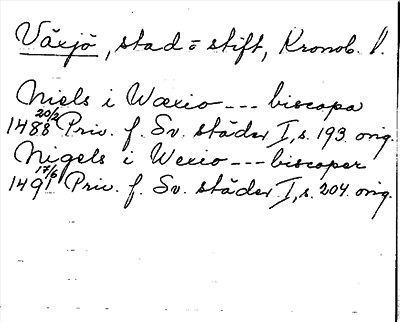 Växjö, stad o stift, Kronob. l.
Niels i Wæxio --- biscopa
1488 20/2 Priv. f. Sv. städer I, s. 193 orig.
Nigels i Wexio --- biscoper
1491 17/6 Priv. f. Sv. städer I, s. 204 orig.